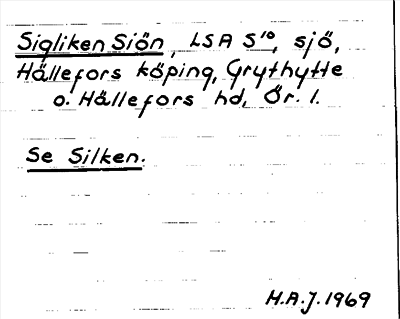 Sigliken Siön, LSA S¹⁰, sjö,
Hällefors köping, Grythytte
o. Hällefors hd, Ör. l.
Se Silken.
H.A.J. 1969